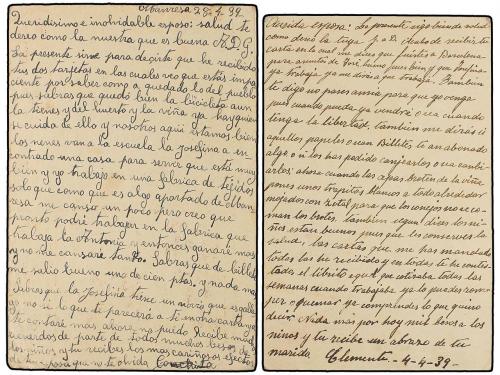 Albanresa 28.4.39.
Queridisimo e inolvidable esposo: salud te
deseo como la nuestra que es buena A.D.G.
La presente sirve para decirte que he recibido
tus dos tarjetas en las cuales veo que estás impa-
ciente por saber como a quedado lo del pueblo
pues sabras que quedó bien la bicicleta aun
la tienes y del huerto y la viña ya hay quien
se cuida de ello y nosotros aqui estamos bien
los nenes van a la escuela la Josefina a en-
contrado una casa para servir que está muy
bien y yo trabajo en una fabrica de tejidos
solo que como que es algo apartado de
casa me canso un poco pero creo que
pronto podré trabajar en la fabrica que
trabaja la Antonia y entonces ganaré mas
y no me cansaré tanto. Sabras que de billetes
me salio bueno uno de cien ptas. y nada mas
Sabras que la Josefina tiene un novio que es
no si lo que te parecerá a te en otra carta ya
te contaré mas ahora no puedo Recibe muchos
recuerdos de parte de todos muchos besos de
los niños y tu recibes los mas cariñosos efectos
de tu esposa que no te olvida Conchita
Querida esposa: La presente sigo siendo salud
como deseo la tuya y a D. Acabo de recibir tu
carta en la cual me dices que fuistes a Barcelona
para asuntos de José bueno pues bien y que Josefina
ya trabaja ya me dirás que trabaja. Tambien
te digo no pases ansia para que yo venga
pues cuando pueda ya vendré o sea cuando
tenga la libertad, tambien me dirás si
aquellos papeles o sean Billetes te an abonado
algo o si los has podido canjearlos o sea cambi-
arlos: ahora cuando las brotes de la viña
pones unos trapitos blancos a todo alrededor
mojados con Zotal para que los conejos no se co-
man los brotes, tambien segun dices los ni-
ños estan buenos pues que les conserves la
salud, las cartas que me has mandado
todas las he recibido y en todas te he contes-
tado el librito que el que cotizaba todas las
semanas cuando trabajaba ya lo puedes rom-
per o quemar, ya comprendes lo que quiero
decir. Nada mas por hoy mil besos a los
ninos y tu recibe un abrazo de tu
marido Clemente - 4-4-39-